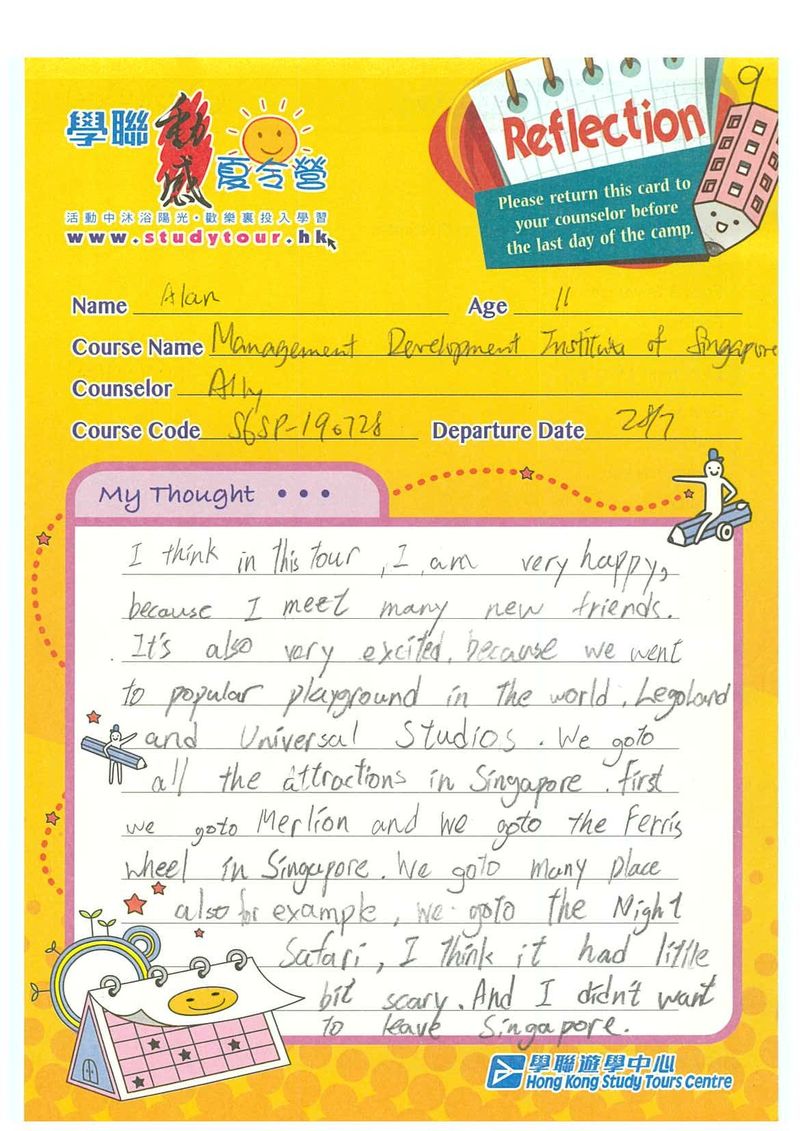 9
學聯
動感
夏令營
活動中沐浴陽光・歡樂裏投入學習
www.studytour.hk
Reflection
Please return this card to
your counselor before
the last day of the camp.
Name Alan Age 11
Course Name Management Development Institute of Singapore
Counselor Ally
Course Code SGSP-190728 Departure Date 28/7
My Thought • • •
I think in this tour, I am very happy,
because I meet many new friends.
It's also very excited, because we went
to popular playground in the world. Legoland
and Universal Studios. We goto
all the attractions in Singapore. First
we goto Merlion and We goto the Ferris
wheel in Singapore. We goto many place
also for example, we goto the Night
Safari, I think it had little
bit scary. And I didn't want
to leave Singapore.
學聯遊學中心
Hong Kong Study Tours Centre